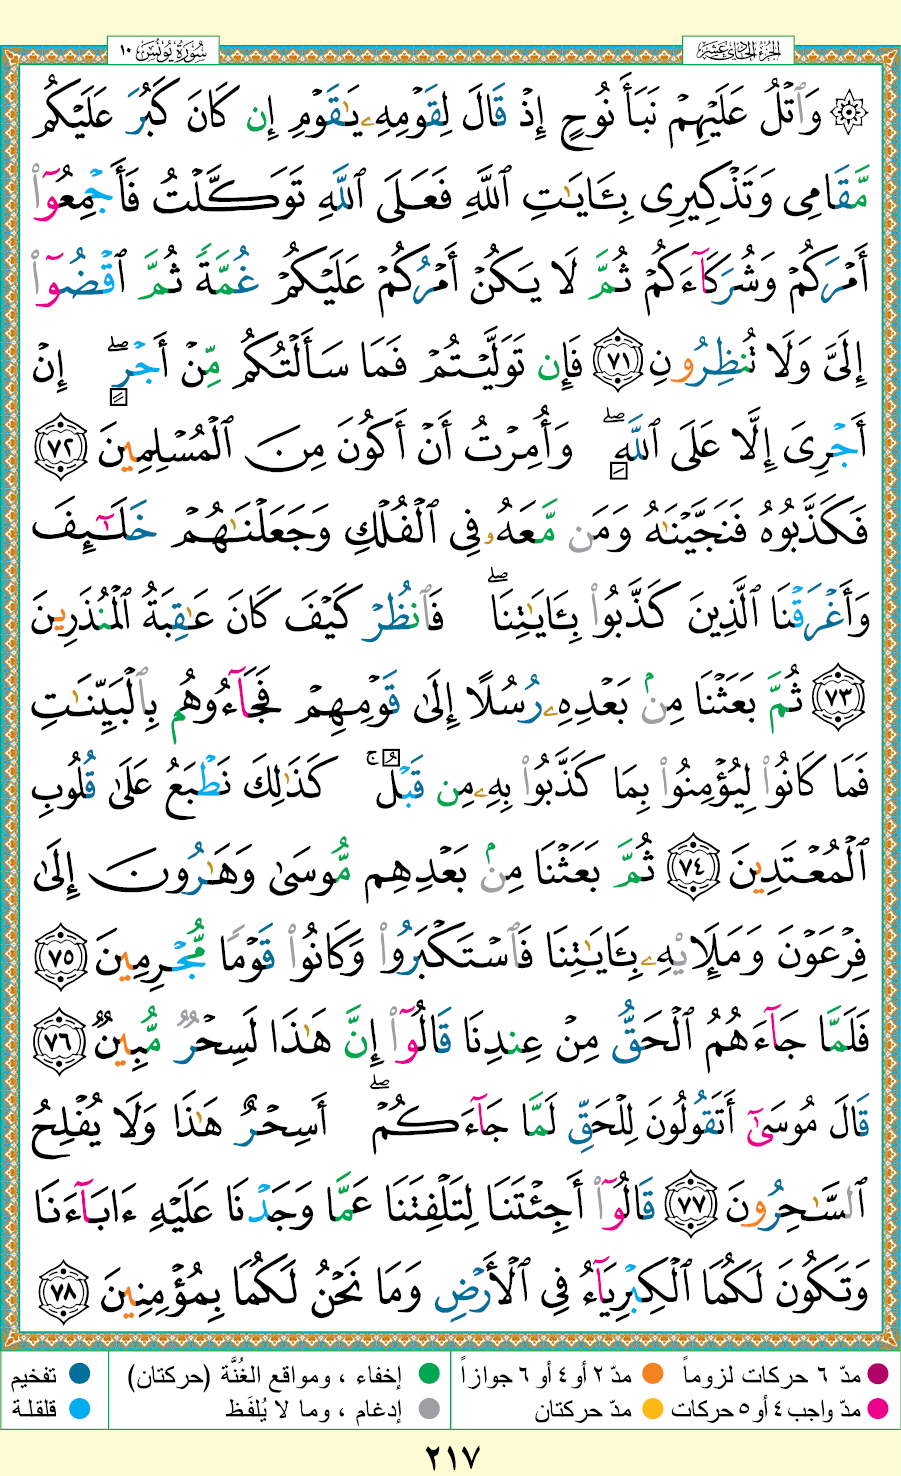 سُورَةُ يُونُسَ ١٠
الجزء الحادي عشر
۞ وَٱتۡلُ عَلَيۡهِمۡ نَبَأَ نُوحٍ إِذۡ قَالَ لِقَوۡمِهِۦ يَٰقَوۡمِ إِن كَانَ كَبُرَ عَلَيۡكُم
مَّقَامِي وَتَذۡكِيرِي بِـَٔايَٰتِ ٱللَّهِ فَعَلَى ٱللَّهِ تَوَكَّلۡتُ فَأَجۡمِعُوٓاْ
أَمۡرَكُمۡ وَشُرَكَآءَكُمۡ ثُمَّ لَا يَكُنۡ أَمۡرُكُمۡ عَلَيۡكُمۡ غُمَّةٗ ثُمَّ ٱقۡضُوٓاْ
إِلَيَّ وَلَا تُنظِرُونِ ٧١ فَإِن تَوَلَّيۡتُمۡ فَمَا سَأَلۡتُكُم مِّنۡ أَجۡرٍۖ إِنۡ
أَجۡرِيَ إِلَّا عَلَى ٱللَّهِۖ وَأُمِرۡتُ أَنۡ أَكُونَ مِنَ ٱلۡمُسۡلِمِينَ ٧٢
فَكَذَّبُوهُ فَنَجَّيۡنَٰهُ وَمَن مَّعَهُۥ فِي ٱلۡفُلۡكِ وَجَعَلۡنَٰهُمۡ خَلَٰٓئِفَ
وَأَغۡرَقۡنَا ٱلَّذِينَ كَذَّبُواْ بِـَٔايَٰتِنَاۖ فَٱنظُرۡ كَيۡفَ كَانَ عَٰقِبَةُ ٱلۡمُنذَرِينَ
٧٣ ثُمَّ بَعَثۡنَا مِنۢ بَعۡدِهِۦ رُسُلًا إِلَىٰ قَوۡمِهِمۡ فَجَآءُوهُم بِٱلۡبَيِّنَٰتِ
فَمَا كَانُواْ لِيُؤۡمِنُواْ بِمَا كَذَّبُواْ بِهِۦ مِن قَبۡلُۚ كَذَٰلِكَ نَطۡبَعُ عَلَىٰ قُلُوبِ
ٱلۡمُعۡتَدِينَ ٧٤ ثُمَّ بَعَثۡنَا مِنۢ بَعۡدِهِم مُّوسَىٰ وَهَٰرُونَ إِلَىٰ
فِرۡعَوۡنَ وَمَلَإِيْهِۦ بِـَٔايَٰتِنَا فَٱسۡتَكۡبَرُواْ وَكَانُواْ قَوۡمٗا مُّجۡرِمِينَ ٧٥
فَلَمَّا جَآءَهُمُ ٱلۡحَقُّ مِنۡ عِندِنَا قَالُوٓاْ إِنَّ هَٰذَا لَسِحۡرٞ مُّبِينٞ ٧٦
قَالَ مُوسَىٰٓ أَتَقُولُونَ لِلۡحَقِّ لَمَّا جَآءَكُمۡۖ أَسِحۡرٌ هَٰذَا وَلَا يُفۡلِحُ
ٱلسَّٰحِرُونَ ٧٧ قَالُوٓاْ أَجِئۡتَنَا لِتَلۡفِتَنَا عَمَّا وَجَدۡنَا عَلَيۡهِ ءَابَآءَنَا
وَتَكُونَ لَكُمَا ٱلۡكِبۡرِيَآءُ فِي ٱلۡأَرۡضِ وَمَا نَحۡنُ لَكُمَا بِمُؤۡمِنِينَ ٧٨
مدّ ٦ حركات لزوماً
مدّ ٢ أو ٤ أو ٦ جوازاً
إخفاء ، ومواقع الغُنَّة (حركتان)
تفخيم
مدّ واجب ٤ أو ٥ حركات
مدّ حركتان
إدغام ، وما لا يُلفَظ
قلقلة
٢١٧